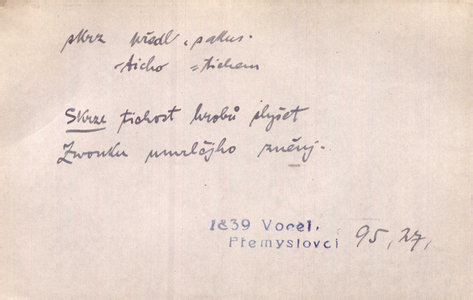 skrz předl. s akus.
-ticho =tichem
Skrze tichost hrobů slyšet
Zwonku umrlčjho zněnj.
1839 Vocel,
Přemyslovci 95, 27,